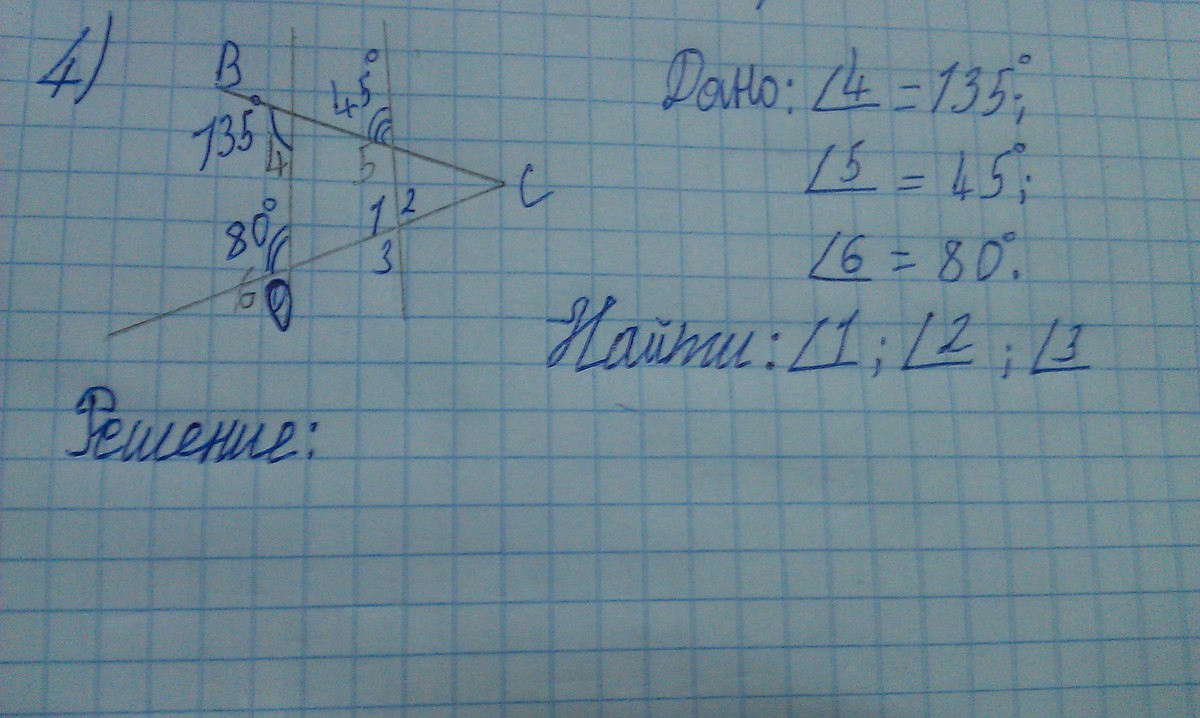 4)
B
135°
4
45°
5
C
80°
1 2
3
6
Дано: ∠4 = 135°;
∠5 = 45°;
∠6 = 80°.
Найти: ∠1; ∠2; ∠3
Решение: